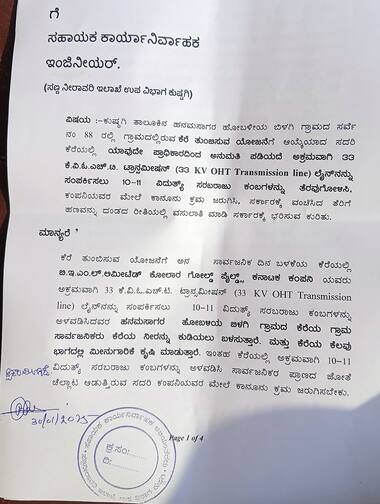 ಗೆ
ಸಹಾಯಕ ಕಾರ್ಯನಿರ್ವಾಹಕ
ಇಂಜಿನೀಯರ್.
(ಸಣ್ಣ ನೀರಾವರಿ ಇಲಾಖೆ ಉಪ ವಿಭಾಗ ಕುಷ್ಟಗಿ)
ವಿಷಯ :-ಕುಷ್ಟಗಿ ತಾಲೂಕಿನ ಹನಮಸಾಗರ ಹೋಬಳೀಯ ಬಿಳಗಿ ಗ್ರಾಮದ ಸರ್ವೆ
ನಂ 88 ರಲ್ಲಿ ಗ್ರಾಮದಲ್ಲಿರುವ ಕೆರೆ ತುಂಬಿಸುವ ಯೋಜನೆಗೆ ಆಯ್ಕೆಯಾದ ಸದರಿ
ಕೆರೆಯಲ್ಲಿ ಯಾವುದೇ ಪ್ರಾಧಿಕಾರದಿಂದ ಅನುಮತಿ ಪಡೆಯದೆ ಅಕ್ರಮವಾಗಿ 33
ಕೆ.ವಿ.ಓ.ಎಚ್.ಟಿ. ಟ್ರಾನ್ಸಮಿಷನ್ (33 KV OHT Transmission line) ಲೈನ್‌ನನ್ನು
ಸಂಪರ್ಕಿಸಲು 10-11 ವಿದುತ್ಯ್ ಸರಬರಾಜು ಕಂಬಗಳನ್ನು ತೆರವುಗೋಳಿಸಿ.
ಕಂಪನಿಯವರ ಮೇಲೆ ಕಾನೂನು ಕ್ರಮ ಜರುಗಿಸಿ, ಸರ್ಕಾರಕ್ಕೆ ವಂಚಿಸಿದ ತೆರಿಗೆ
ಹಣವನ್ನು ದಂಡದ ರೀತಿಯಲ್ಲಿ ವಸುಲಾತಿ ಮಾಡಿ ಸರ್ಕಾರಕ್ಕೆ ಭರಿಸುವ ಕುರಿತು.
ಮಾನ್ಯರೆ
ಕೆರೆ ತುಂಬಿಸುವ ಯೋಜನೆಗೆ ಅನ ಸಾರ್ವಜನಿಕ ದಿನ ಬಳಕೆಯ ಕೆರೆಯಲ್ಲಿ
ಬಿ.ಇ.ಎಂ.ಎಲ್.ಲಿಮೀಟೆಡ್ ಕೋಲಾರ ಗೋಲ್ಡ್ ಕರ್ನಾಟಕ ಕಂಪನಿ ಯವರು
ಅಕ್ರಮವಾಗಿ 33 ಕೆ.ವಿ.ಓ.ಎಚ್.ಟಿ. ಟ್ರಾನ್ಸಮಿಷನ್ (33 KV OHT Transmission
line) ಲೈನ್‌ನನ್ನು ಸಂಪರ್ಕಿಸಲು 10-11 ವಿದುತ್ಯ್ ಸರಬರಾಜು ಕಂಬಗಳನ್ನು
ಅಳವಡಿಸಿದವರ ಹನಮಸಾಗರ ಹೋಬಳಿಯ ಬಿಳಗಿ ಗ್ರಾಮದ ಕೆರೆಯ ಗ್ರಾಮ
ಸಾರ್ವಜನಿಕರು ಕೆರೆಯ ನೀರನ್ನು ಕುಡಿಯಲು ಬಳಸುತ್ತಾರೆ. ಮತ್ತು ಕೆರೆಯ ಕೆಲವು
ಭಾಗದಲ್ಲಿ ಮೀನುಗಾರಿಕೆ ಕೃಷಿ ಮಾಡುತ್ತಾರೆ. ಇಂತಹ ಕೆರೆಯಲ್ಲಿ ಅಕ್ರಮವಾಗಿ 10-11
ವಿದುತ್ಯ್ ಸರಬರಾಜು ಕಂಬಗಳನ್ನು ಅಳವಡಿಸಿ ಸಾರ್ವಜನಿಕರ ಪ್ರಾಣದ ಜೋತೆ
ಚೆಲ್ಲಾಟ ಆಡುತ್ತಿರುವ ಸದರಿ ಕಂಪನಿಯವರ ಮೇಲೆ ಕಾನೂನು ಕ್ರಮ ಜರುಗಿಸಬೇಕು.
30/01/2025
Page 1 of 4
ಕ್ರ.ಸಂ:
ದಿ: